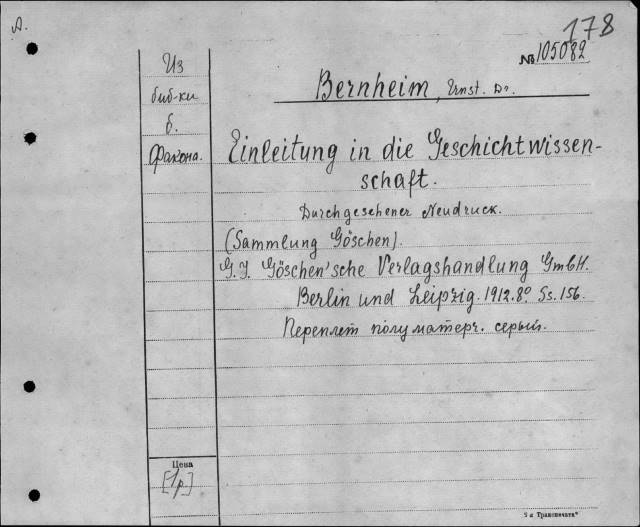 A.
178
№ 105082
Из
биб-ки
б.
Факона.
Bernheim, Ernst. Dr.
Einleitung in die Geschichtwissen-
schaft.
Durchgesehener Neudruck.
(Sammlung Göschen).
G.J. Göschen'sche Verlagshandlung GmbH.
Berlin und Leipzig. 1912. 8° Ss. 156.
Переплет полуматерч. серый.
Цена
[1р]
"Транспечать"